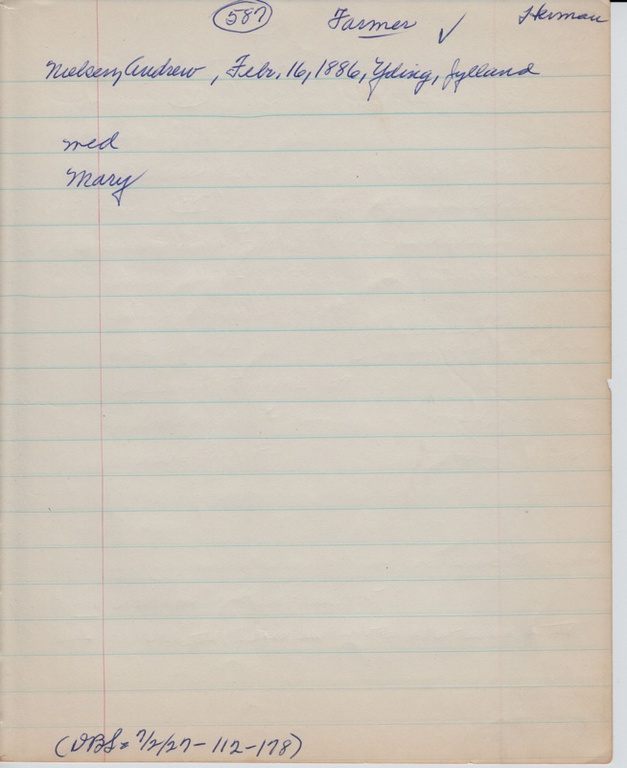 587 Farmer ✓ Herman
Nielsen, Andrew, Febr. 16, 1886, Yding, Jylland
med
Mary
(DBS = 7/2/27 - 112 - 178)